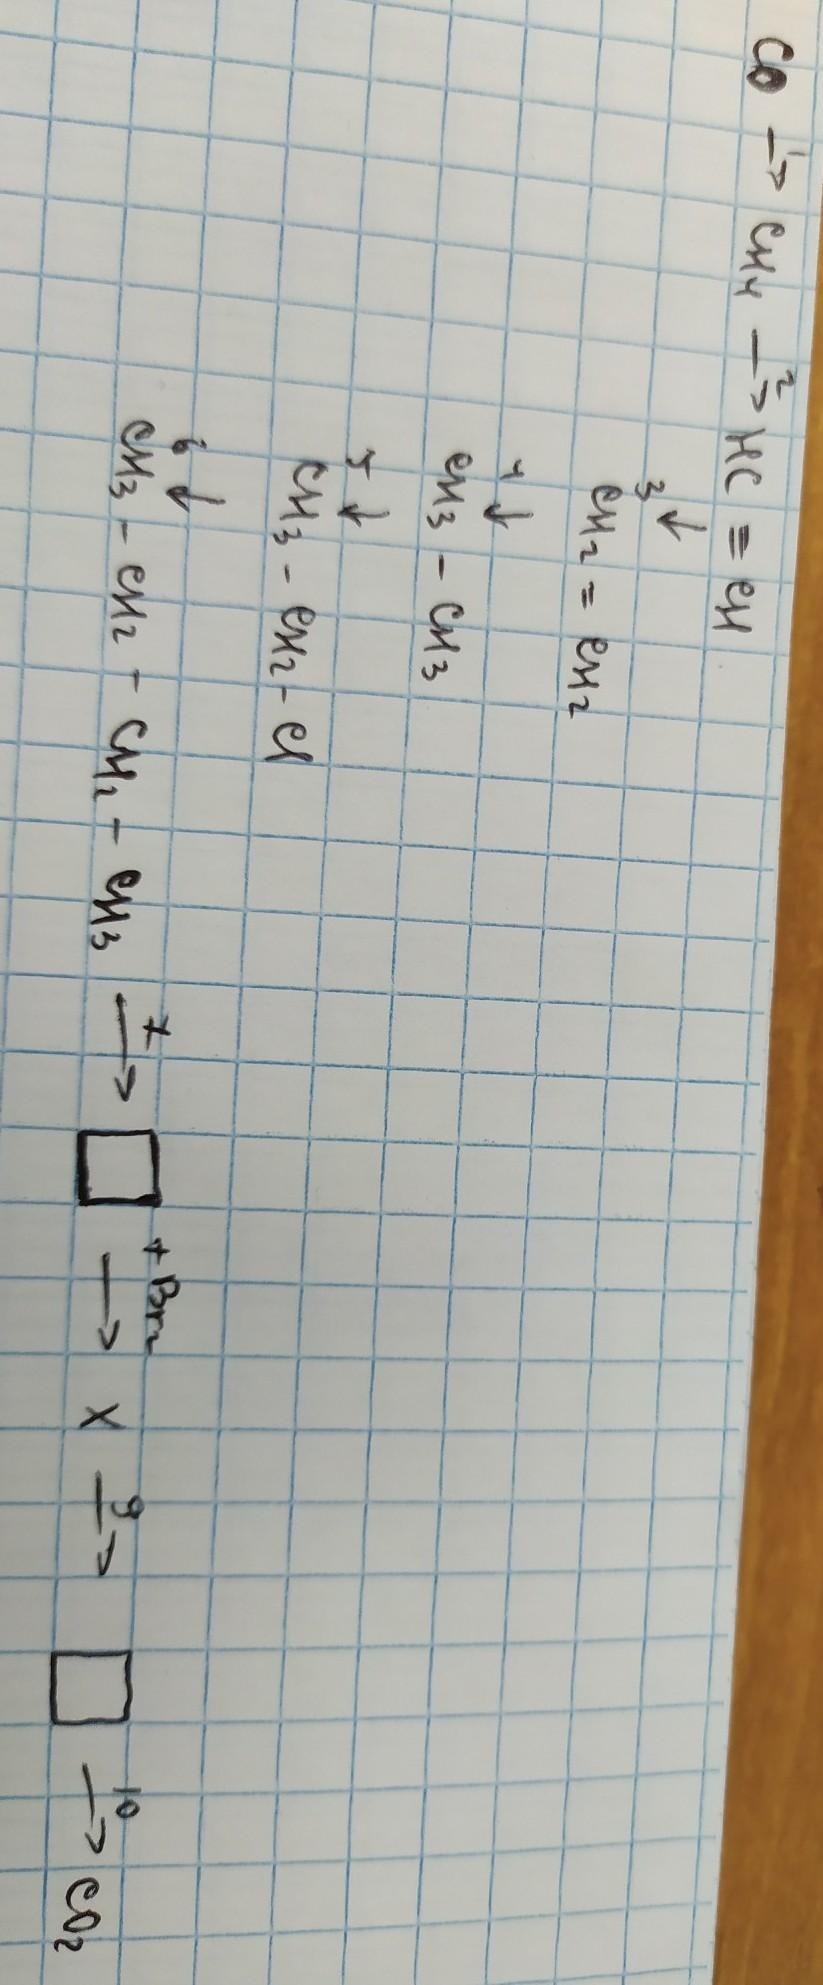 CO →1 CH4 →2 HC ≡ CH
3 ↓
CH2 = CH2
4 ↓
CH3 – CH3
5 ↓
CH3 – CH2 – Cl
6 ↓
CH3 – CH2 – CH2 – CH3 →7 □ →+Br2 X →9 □ →10 CO2